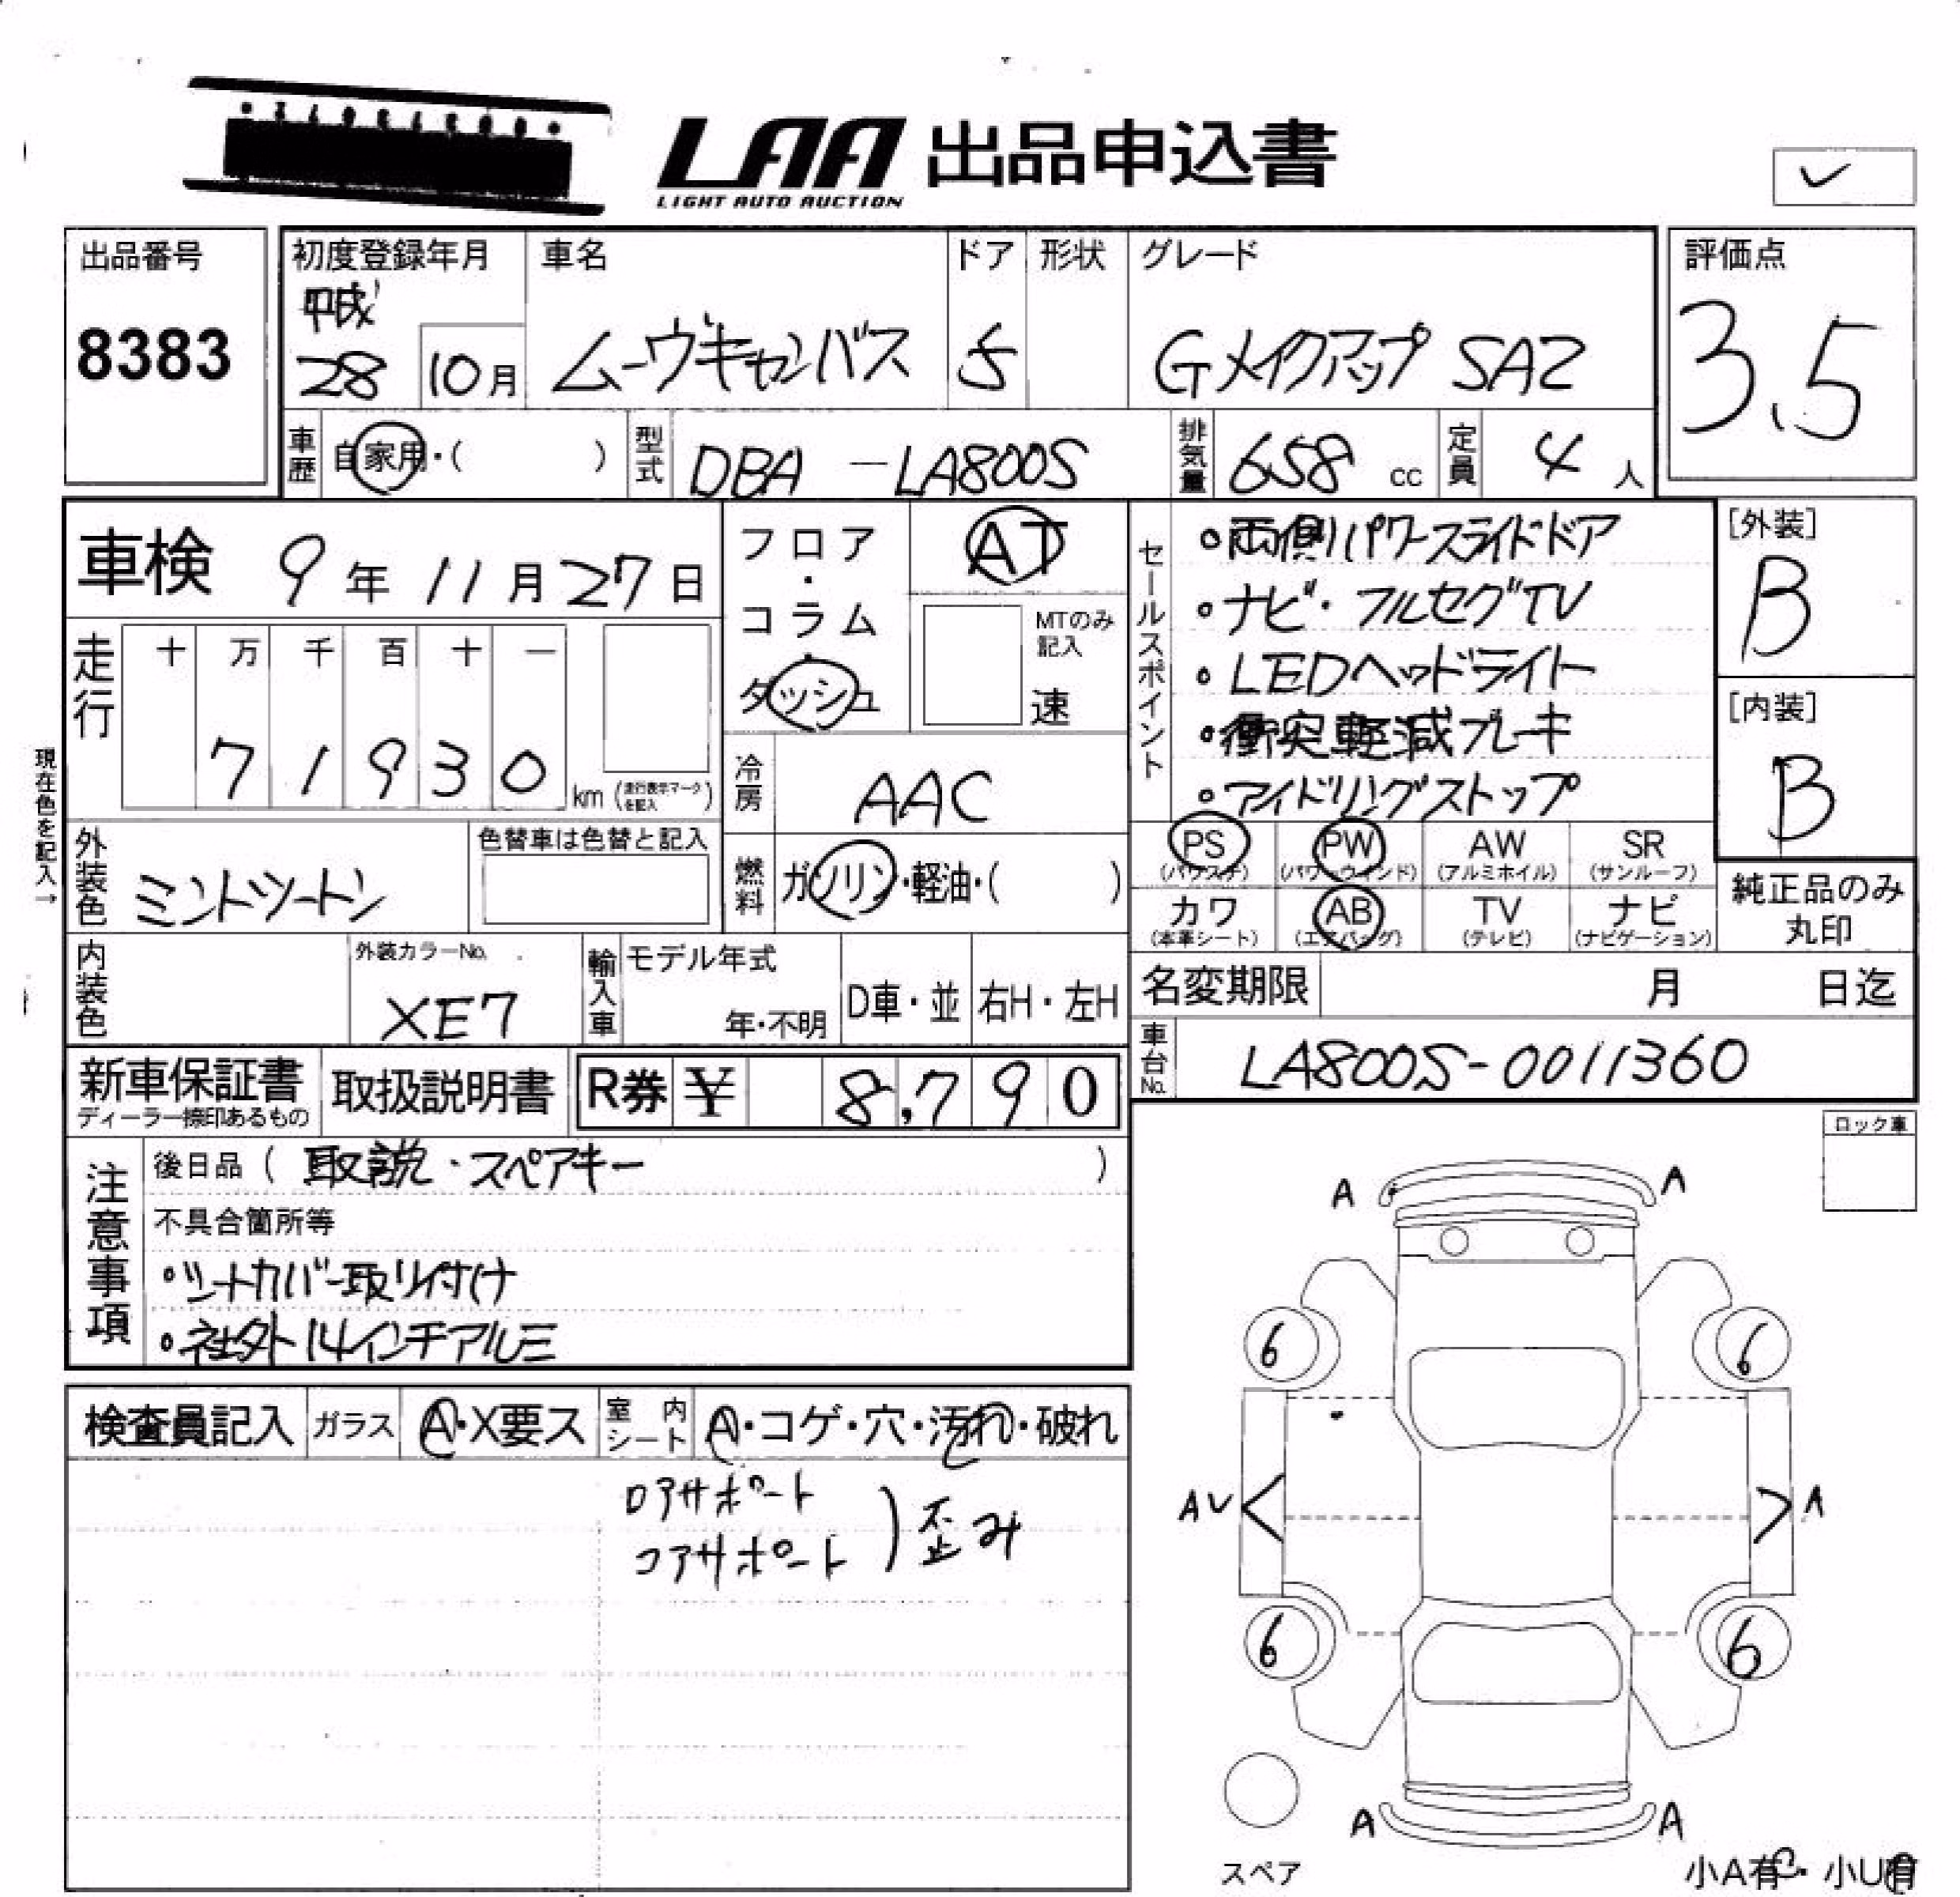 LAA 出品申込書
LIGHT AUTO AUCTION
出品番号
8383
初度登録年月
平成
28 10月
車名
ムーヴキャンバス
ドア
5
形状
グレード
Gメイクアップ SA2
評価点
3.5
車歴 自家用・( )
型式 DBA -LA800S
排気量 658 cc
定員 4 人
車検 9年 11月 27日
走行
十 万 千 百 十 一
7 1 9 3 0 km (走行表示マークを記入)
現在色を記入→
外装色 ミントツートン
色替車は色替と記入
内装色
外装カラーNo.
XE7
輸入車
モデル年式
年・不明
D車・並
右H・左H
フロア・コラム・ダッシュ
AT
MTのみ記入
速
冷房 AAC
燃料 ガソリン・軽油・( )
セールスポイント
・両側パワースライドドア
・ナビ・フルセグTV
・LEDヘッドライト
・衝突軽減ブレーキ
・アイドリングストップ
[外装]
B
[内装]
B
PS PW AW SR
(パワステ) (パワーウィンド) (アルミホイル) (サンルーフ)
カワ AB TV ナビ
(本革シート) (エアバッグ) (テレビ) (ナビゲーション)
純正品のみ
丸印
名変期限 月 日迄
車台No. LA800S-0011360
新車保証書
ディーラー捺印あるもの
取扱説明書
R券 ¥ 8,790
注意事項
後日品 ( 取説・スペアキー )
不具合箇所等
・シートカバー取り付け
・社外14インチアルミ
検査員記入
ガラス A・X要ス
室内シート A・コゲ・穴・汚れ・破れ
ロアサポート
コアサポート ) 歪み
ロック車
A A
6 6
AV A
6 6
A A
スペア
小A有・小U有